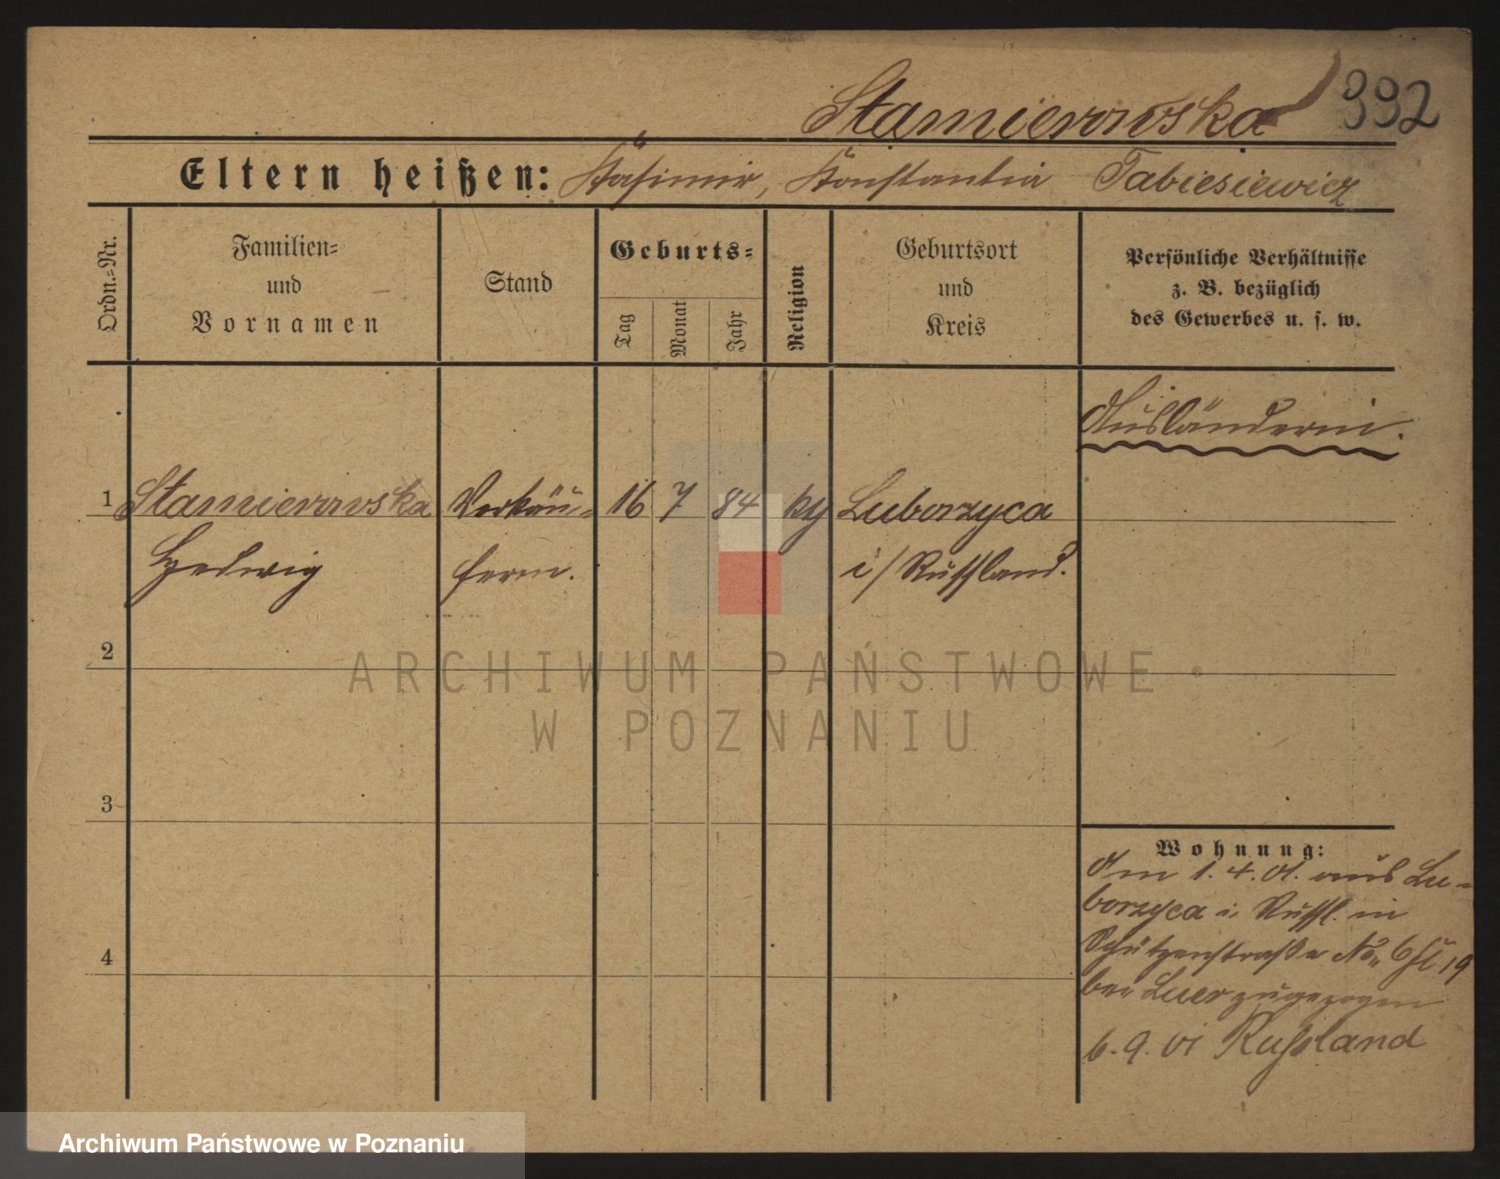 Stamierowska 392
Eltern heißen: Kasimir, Konstantia Tabiesiewicz
Ordn.-Nr.
Familien-
und
Vornamen
Stand
Geburts-
Tag
Monat
Jahr
Religion
Geburtsort
und
Kreis
Persönliche Verhältnisse
z. B. bezüglich
des Gewerbes u. s. w.
Ausländerin.
1 Stamierowska Verkäu- 16 7 84 Luborzyca
Hedwig ferin. i/Russland.
2
3
4
Wohnung:
Am 1. 4. 01. aus Lu-
borzyca i. Russl. in
Schützenstraße No. 6
bei Luer zugezogen
6. 9. 01 Russland
ARCHIWUM PAŃSTWOWE
W POZNANIU
Archiwum Państwowe w Poznaniu